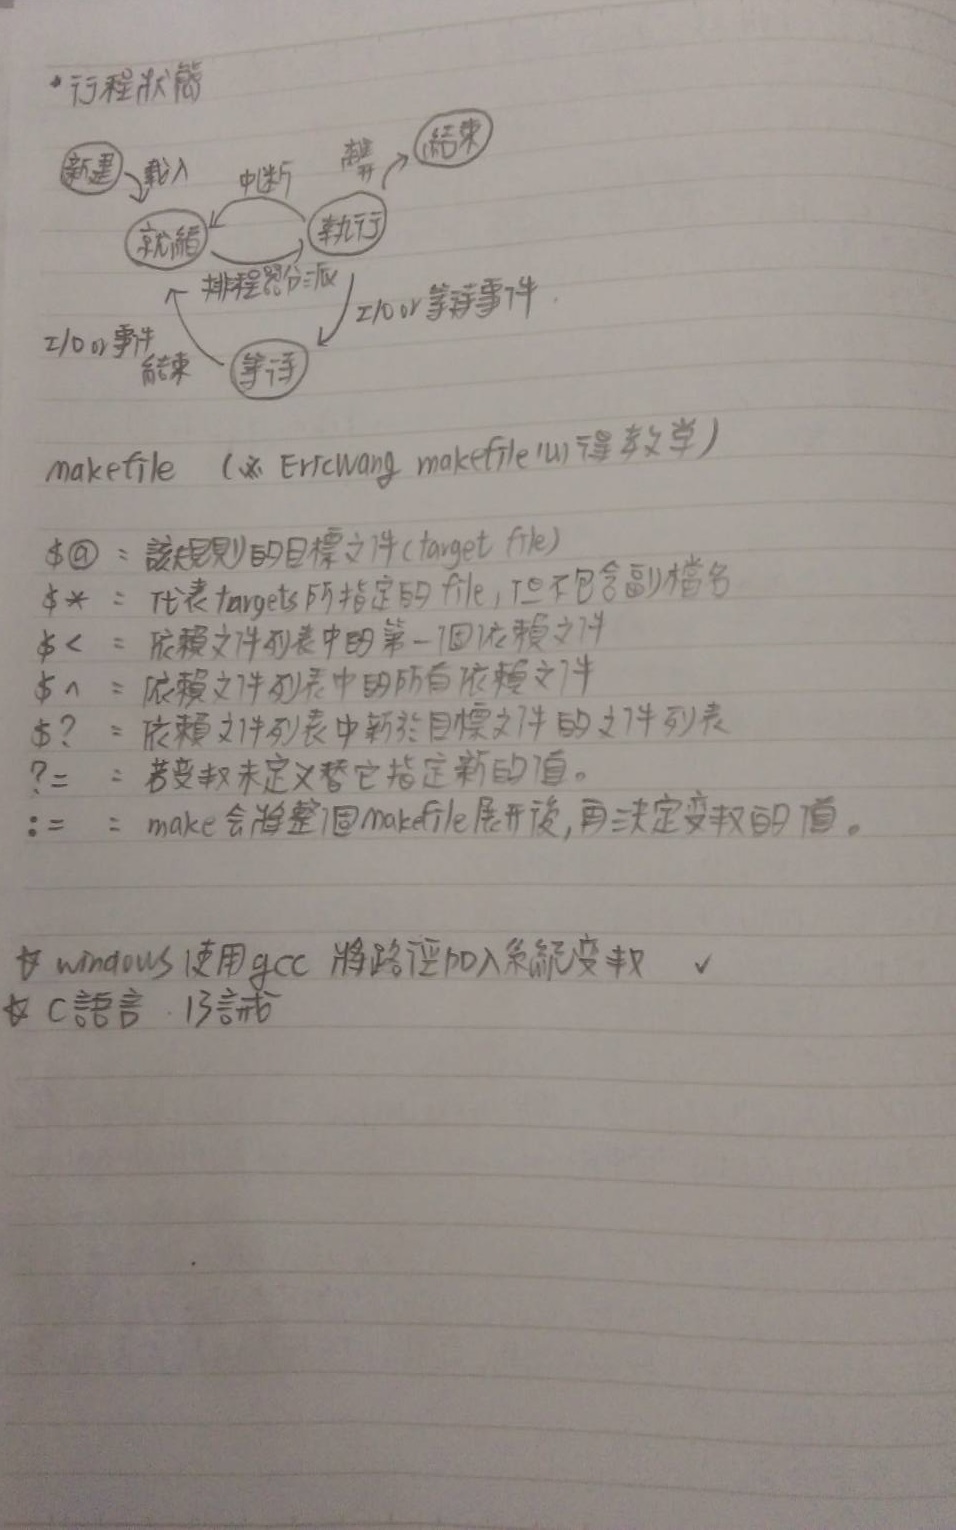 •行程狀態
結束
離開
新建 載入 中斷
就緒 執行
排程器分派
I/O or 等待事件
I/O or 事件
結束
等待
makefile (※ EricWang makefile 學教学)
$@ : 該規則的目標文件(target file)
$* : 代表targets所指定的file,但不包含副檔名
$< : 依賴文件列表中的第一個依賴文件
$^ : 依賴文件列表中的所有依賴文件
$? : 依賴文件列表中新於目標文件的文件列表
?= : 若变数未定义替它指定新的值。
:= : make会將整個makefile展開後,再決定变数的值。
☆ windows使用gcc 將路徑加入系統变数 ✓
☆ C語言 13誡